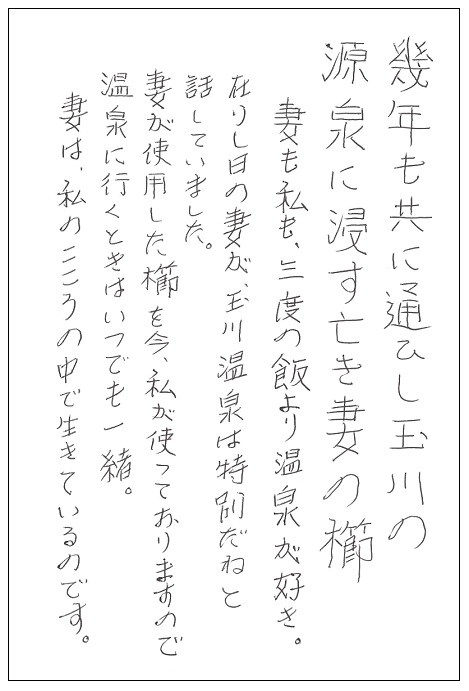 幾年も共に通ひし玉川の
源泉に浸す亡き妻の櫛
妻も私も、三度の飯より温泉が好き。
在りし日の妻が、玉川温泉は特別だねと
話していました。
妻が使用した櫛を今、私が使っておりますので
温泉に行くときはいつでも一緒。
妻は、私のこころの中で生きているのです。